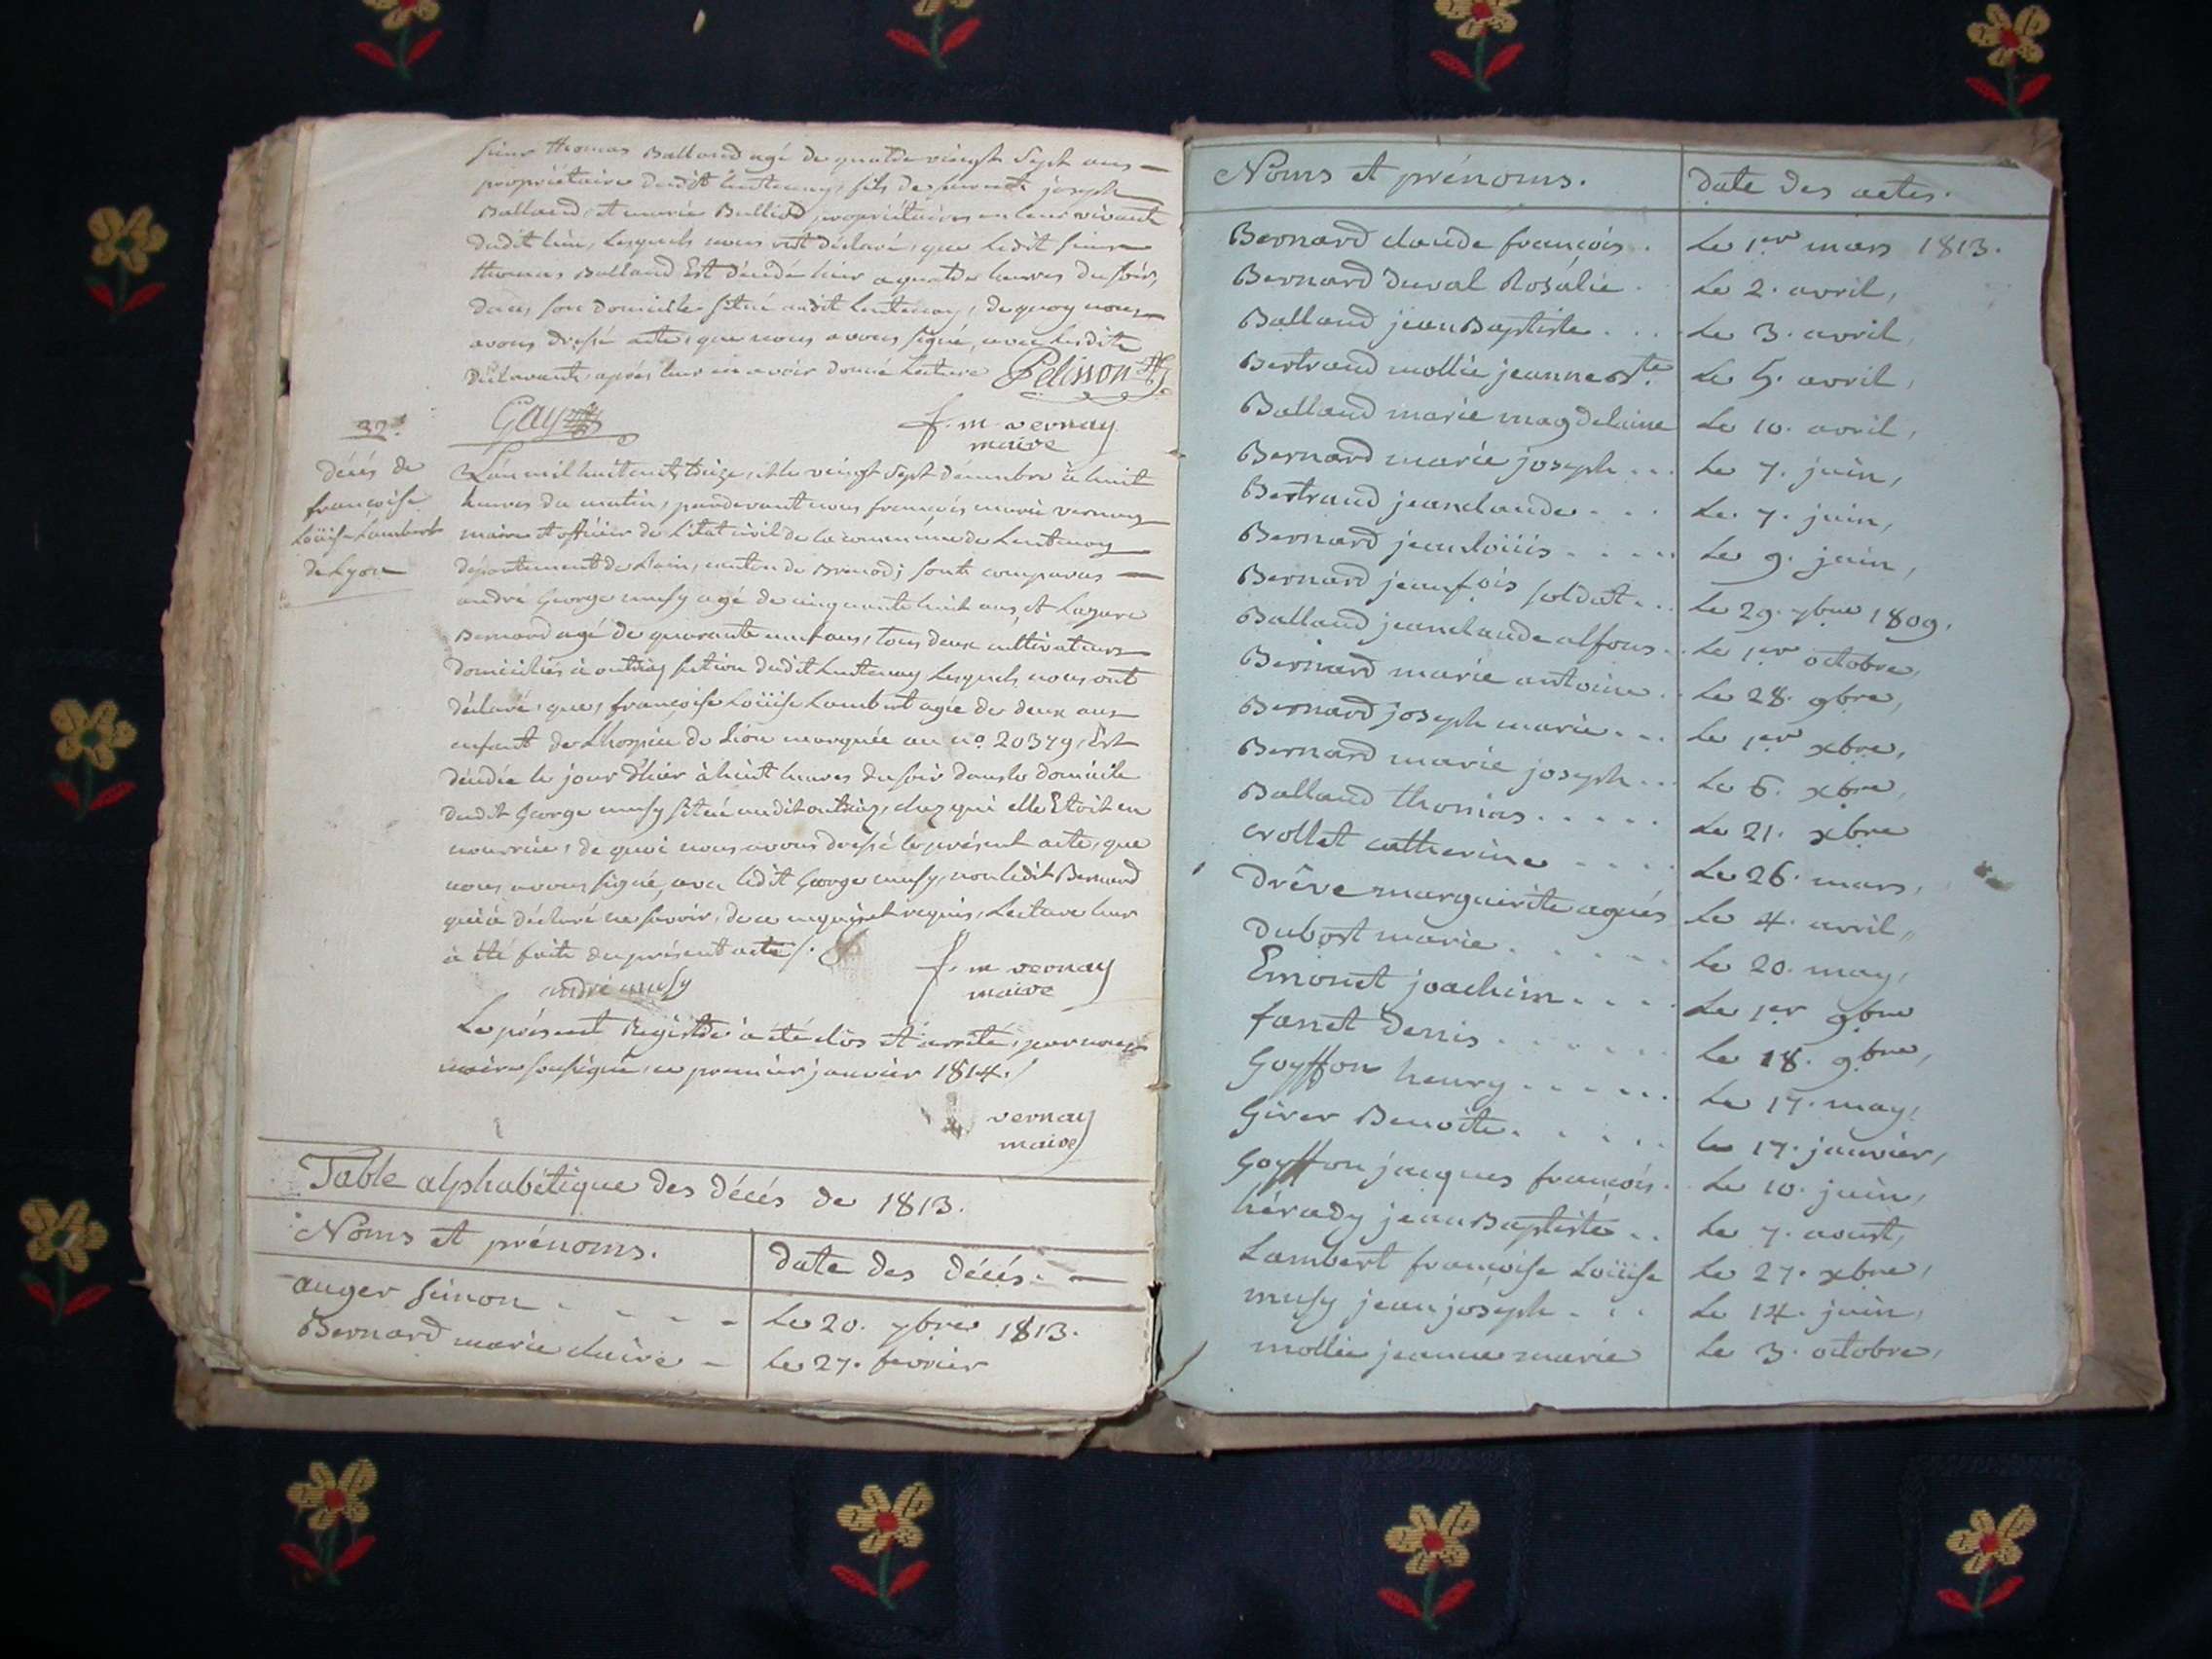 sieur thomas Balland agé de quatre vingt Sept ans
propriétaire dudit lentenay, fils de feu joseph
Balland, et marie Bulliod, propriétaires en leur vivant
dudit lieu, Lesquels nous ont déclaré, que Ledit sieur
thomas Balland Est décédé hier a quatre heures du soir,
dans son domicile situé audit Lentenay, de quoy nous
avons dressé acte, que nous avons signé, avec lesdits
Déclarants, après leur en avoir donné Lecture Pelisson
Gay f. m vernay
maire
32.
décés de
françoise
Loüise Lambert
de Lyon
L'an mil huit cent treize, et le vingt Sept décembre à huit
heures du matin, pardevant nous françois marie vernay
maire et officier de L'état civil de la commune de Lentenay
département de L'ain, canton de Brenod; sont comparus
andré George musy agé de cinquante huit ans, et Lazare
Bernard agé de quarante neuf ans, tous deux cultivateurs
domiciliés à outriaz section dudit Lentenay Lesquels nous ont
déclaré, que, françoise Loüise Lambert agée de deux ans
enfant de L'hospice de Lion marquée au no. 20379, Est
décédée le jour d'hier à huit heures du soir dans le domicile
dudit George musy situé audit outriaz, chez qui elle Etoit en
nourrice, de quoi nous avons dressé le présent acte, que
nous avons signé, avec ledit George musy, non ledit Bernard
qui à déclaré ne savoir, de ce enquis et requis, Lecture leur
à été faite du présent acte /.
andré musy f. m vernay
maire
Le présent Registre à été clos et arrêté, par nous
maire soussigné, ce premier janvier 1814./
vernay
maire
Table alphabétique des décés de 1813.
Noms et prénoms. date des décés.
auger simon . . . . Le 20. 7bre 1813.
Bernard marie claire Le 27. fevrier
Noms et prénoms. date des actes.
Bernard claude françois. Le 1er mars 1813.
Bernard duval Rosalie . Le 2. avril,
Balland jean Baptiste . . . Le 3. avril,
Bertrand mollie jeanne Bte. Le 5. avril,
Balland marie magdelaine Le 10. avril,
Bernard marie joseph . . . Le 7. juin,
Bertrand jean claude . . . Le 7. juin,
Bernard jean loüis . . . . . Le 9. juin,
Bernard jean fois soldat . . . Le 29. 7bre 1809.
Balland jean claude alfons . . Le 1er octobre,
Bernard marie antoine . . Le 28. 9bre,
Bernard joseph marie . . . Le 1er xbre,
Bernard marie joseph . . . Le 6. xbre,
Balland thomas . . . . . Le 21. xbre
crollet catherine . . . . Le 26. mars,
Drêve marguerite agnés Le 4. avril,
Dubost marie . . . . . Le 20. may,
Emonet joachim . . . . Le 1er 9bre
fanet Denis . . . . . . Le 18. 9bre,
Goyffon henry . . . . . . Le 17. may,
Girer Benoite . . . . . le 17. janvier,
Goyffon jacques françois . Le 10. juin,
hérady jean Baptiste . . Le 7. aoust,
Lambert françoise Loüise Le 27. xbre,
musy jean joseph . . . Le 14. juin,
mollie jeanne marie Le 3. octobre,